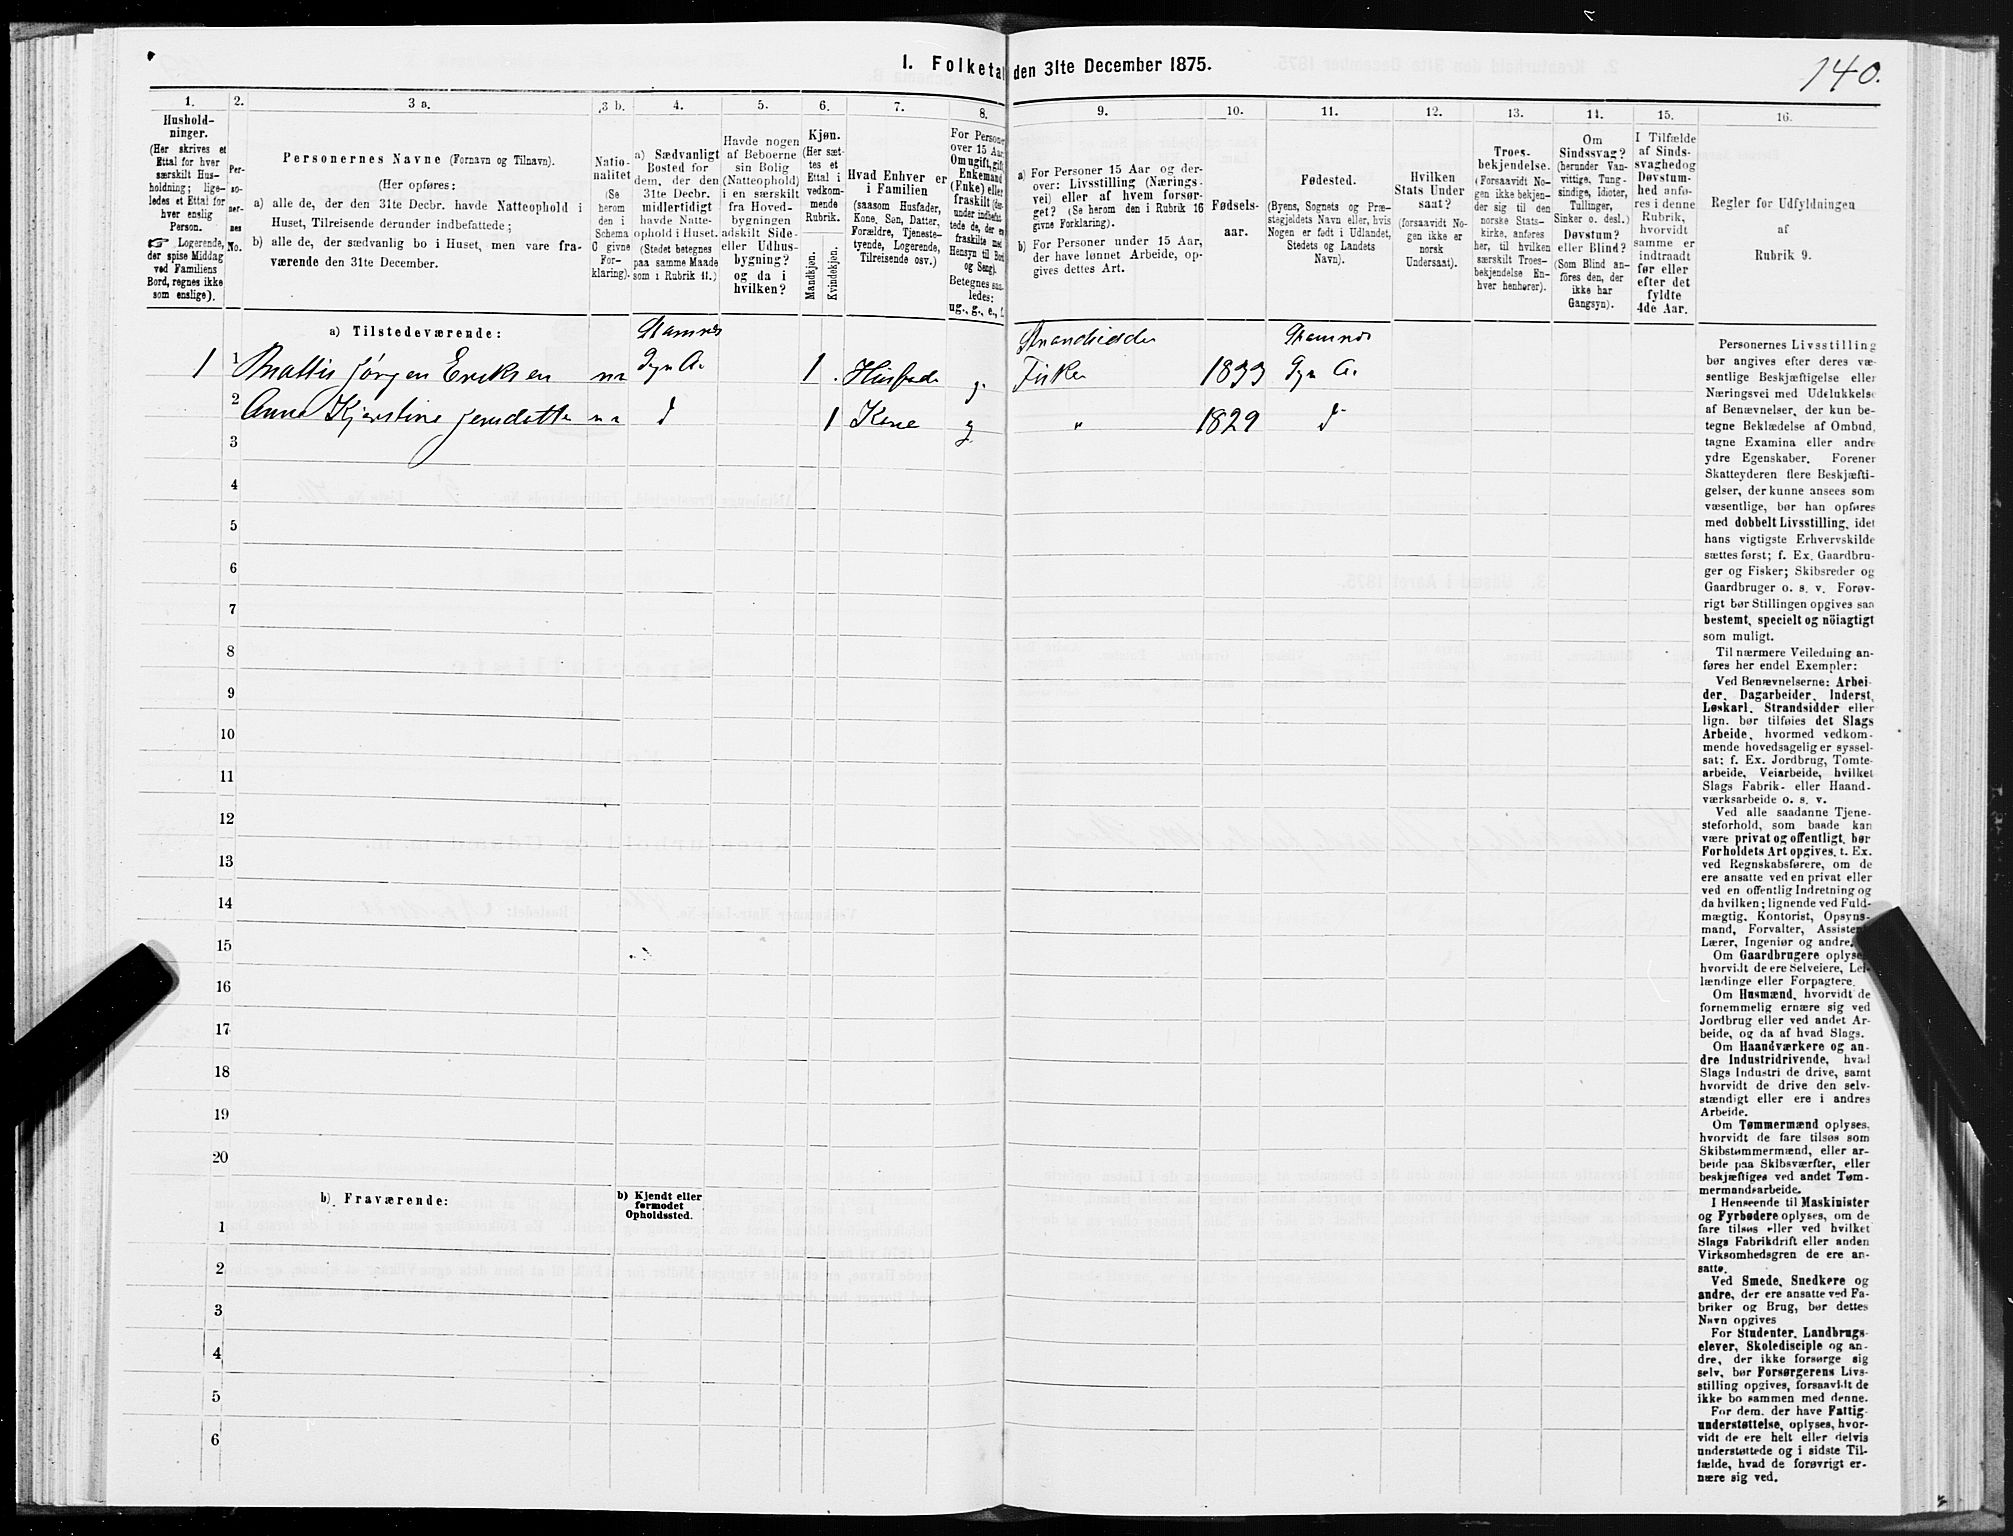 I. Folketal den 31te December 1875.
140.
1.
2.
3 a.
3 b.
4.
5.
6.
7.
8.
9.
10.
11.
12.
13.
14.
15.
16.
Hushold-
ninger.
(Her skrives et
Ettal for hver
særskilt Hus-
holdning; lige-
ledes et Ettal for
hver enslig
Person.
☞ Logerende,
der spise Middag
ved Familiens
Bord, regnes ikke
som enslige).
Per-
so-
ner-
nes
No.
Personernes Navne (Fornavn og Tilnavn).
(Her opføres:
a) alle de, der den 31te Decbr. havde Natteophold i
Huset, Tilreisende derunder indbefattede;
b) alle de, der sædvanlig bo i Huset, men vare fra-
værende den 31te December.
Natio-
nalitet
(Se
herom
den i
Schema
C givne
For-
klaring).
a) Sædvanligt
Bosted for
dem, der den
31te Decbr.
midlertidigt
havde Natte-
ophold i Huset.
(Stedet betegnes
paa samme Maade
som i Rubrik 11.)
Havde nogen
af Beboerne
sin Bolig
(Natteophold)
i en særskilt
fra Hoved-
bygningen
adskilt Side-
eller Udhus-
bygning?
og da i
hvilken?
Kjøn.
(Her sæt-
tes et
Ettal i
vedkom-
mende
Rubrik.
Mandkjøn.
Kvindekjøn.
Hvad Enhver er
i Familien
(saasom Husfader,
Kone, Søn, Datter,
Forældre, Tjeneste-
tyende, Logerende,
Tilreisende osv.)
For Personer
over 15 Aar:
Om ugift, gift,
Enkemand
(Enke) eller
fraskilt (der-
under indbefat-
tede de, der ere
fraskilte med
Hensyn til Bord
og Seng).
Betegnes saa-
ledes:
ug., g., e., f.
a) For Personer 15 Aar og der-
over: Livsstilling (Nærings-
vei) eller af hvem forsør-
get? (Se herom den i Rubrik 16
givne Forklaring).
b) For Personer under 15 Aar,
der have lønnet Arbeide, op-
gives dettes Art.
Fødsels-
aar.
Fødested.
(Byens, Sognets og Præ-
stegjeldets Navn eller, hvis
Nogen er født i Udlandet,
Stedets og Landets
Navn).
Hvilken
Stats Under
saat?
(forsaavidt No-
gen ikke er
norsk
Undersaat).
Troes-
bekjendelse.
(Forsaavidt No-
gen ikke bekjen-
der sig til den
norske Stats-
kirke, anføres
her, til hvilken
særskilt Troes-
bekjendelse En-
hver henhører).
Om
Sindssvag?
(herunder Van-
vittige, Tung-
sindige, Idioter,
Tullinger,
Sinker o. desl.)
Døvstum?
eller Blind?
(Som Blind an-
føres den, der
ikke har
Gangsyn).
I Tilfælde
af Sinds-
svaghed og
Døvstum-
hed anfø-
res i denne
Rubrik,
hvorvidt
samme er
indtraadt
før eller
efter det
fyldte
4de Aar.
Regler for Udfyldningen
af
Rubrik 9.
a) Tilstedeværende:
Stamnes
Strandsidder
Stamnes
1 1 Mattis Jørgen Eriksen Dyn A. 1 Husfader g. Fisker 1833 Dyn A.
2 Anne Kjerstine Jensdatter d 1 Kone g " 1829 d
3
4
5
6
7
8
9
10
11
12
13
14
15
16
17
18
19
20
b) Fraværende:
b) Kjendt eller
formodet
Opholdssted.
1
2
3
4
5
6
Personernes Livsstilling
bør angives efter deres væ-
sentlige Beskjæftigelse eller
Næringsvei med Udelukkelse
af Benævnelser, der kun be-
tegne Beklædelse af Ombud,
tagne Examina eller andre
ydre Egenskaber. Forener
Skatteyderen flere Beskjæfti-
gelser, der kunne ansees som
væsentlige, bør han opføres
med dobbelt Livsstilling, idet
hans vigtigste Erhvervskilde
sættes først; f. Ex. Gaardbru-
ger og Fisker; Skibsreder og
Gaardbruger o. s. v. Forøv-
rigt bør Stillingen opgives saa
bestemt, specielt og nöiagtigt
som muligt.
Til nærmere Veiledning an-
føres her endel Exempler:
Ved Benævnelserne: Arbei-
der, Dagarbeider, Inderst,
Løskarl, Strandsidder eller
lign. bør tilføies det Slags
Arbeide, hvormed vedkom-
mende hovedsagelig er syssel-
sat; f. Ex. Jordbrug, Tomte-
arbeide, Veiarbeide, hvilket
Slags Fabrik- eller Haand-
værksarbeide o. s. v.
Ved alle saadanne Tjene-
steforhold, som baade kan
være privat og offentligt, bør
Forholdets Art opgives, t. Ex.
ved Regnskabsførere, om de
ere ansatte ved en privat eller
ved en offentlig Indretning og
da hvilken; lignende ved Fuld-
mægtig, Kontorist, Opsyns-
mand, Forvalter, Assistent,
Lærer, Ingeniør og andre.
Om Gaardbrugere oplyses,
hvorvidt de ere Selveiere, Lei-
lændinge eller Forpagtere.
Om Husmænd, hvorvidt de
fornemmelig ernære sig ved
Jordbrug eller ved andet Ar-
beide, og da af hvad Slags.
Om Haandværkere og an-
dre Industridrivende, hvad
Slags Industri de drive, samt
hvorvidt de drive den selv-
stændigt eller ere i andres
Arbeide.
Om Tømmermænd oplyses,
hvorvidt de fare tilsøs som
Skibstømmermænd, eller ar-
beide paa Skibsværfter, eller
beskjæftiges ved andet Tøm-
mermandsarbeide.
I Henseende til Maskinister
og Fyrbødere oplyses, om de
fare tilsøs eller ved hvilket
Slags Fabrikdrift eller anden
Virksomhedsgren de ere an-
satte.
Ved Smede, Snedkere og
andre, der ere ansatte ved Fa-
briker og Brug, bør dettes
Navn opgives
For Studenter, Landbrugs-
elever, Skoledisciple og an-
dre, der ikke forsørge sig
selv, bør Forsørgerens Livs-
stilling opgives, forsaavidt de
ikke bo sammen med denne.
For dem, der have Fattig-
understøttelse, oplyses, hvor-
vidt de ere helt eller delvis
understøttede og i sidste Til-
fælde, hvad de forøvrigt er-
nære sig ved.